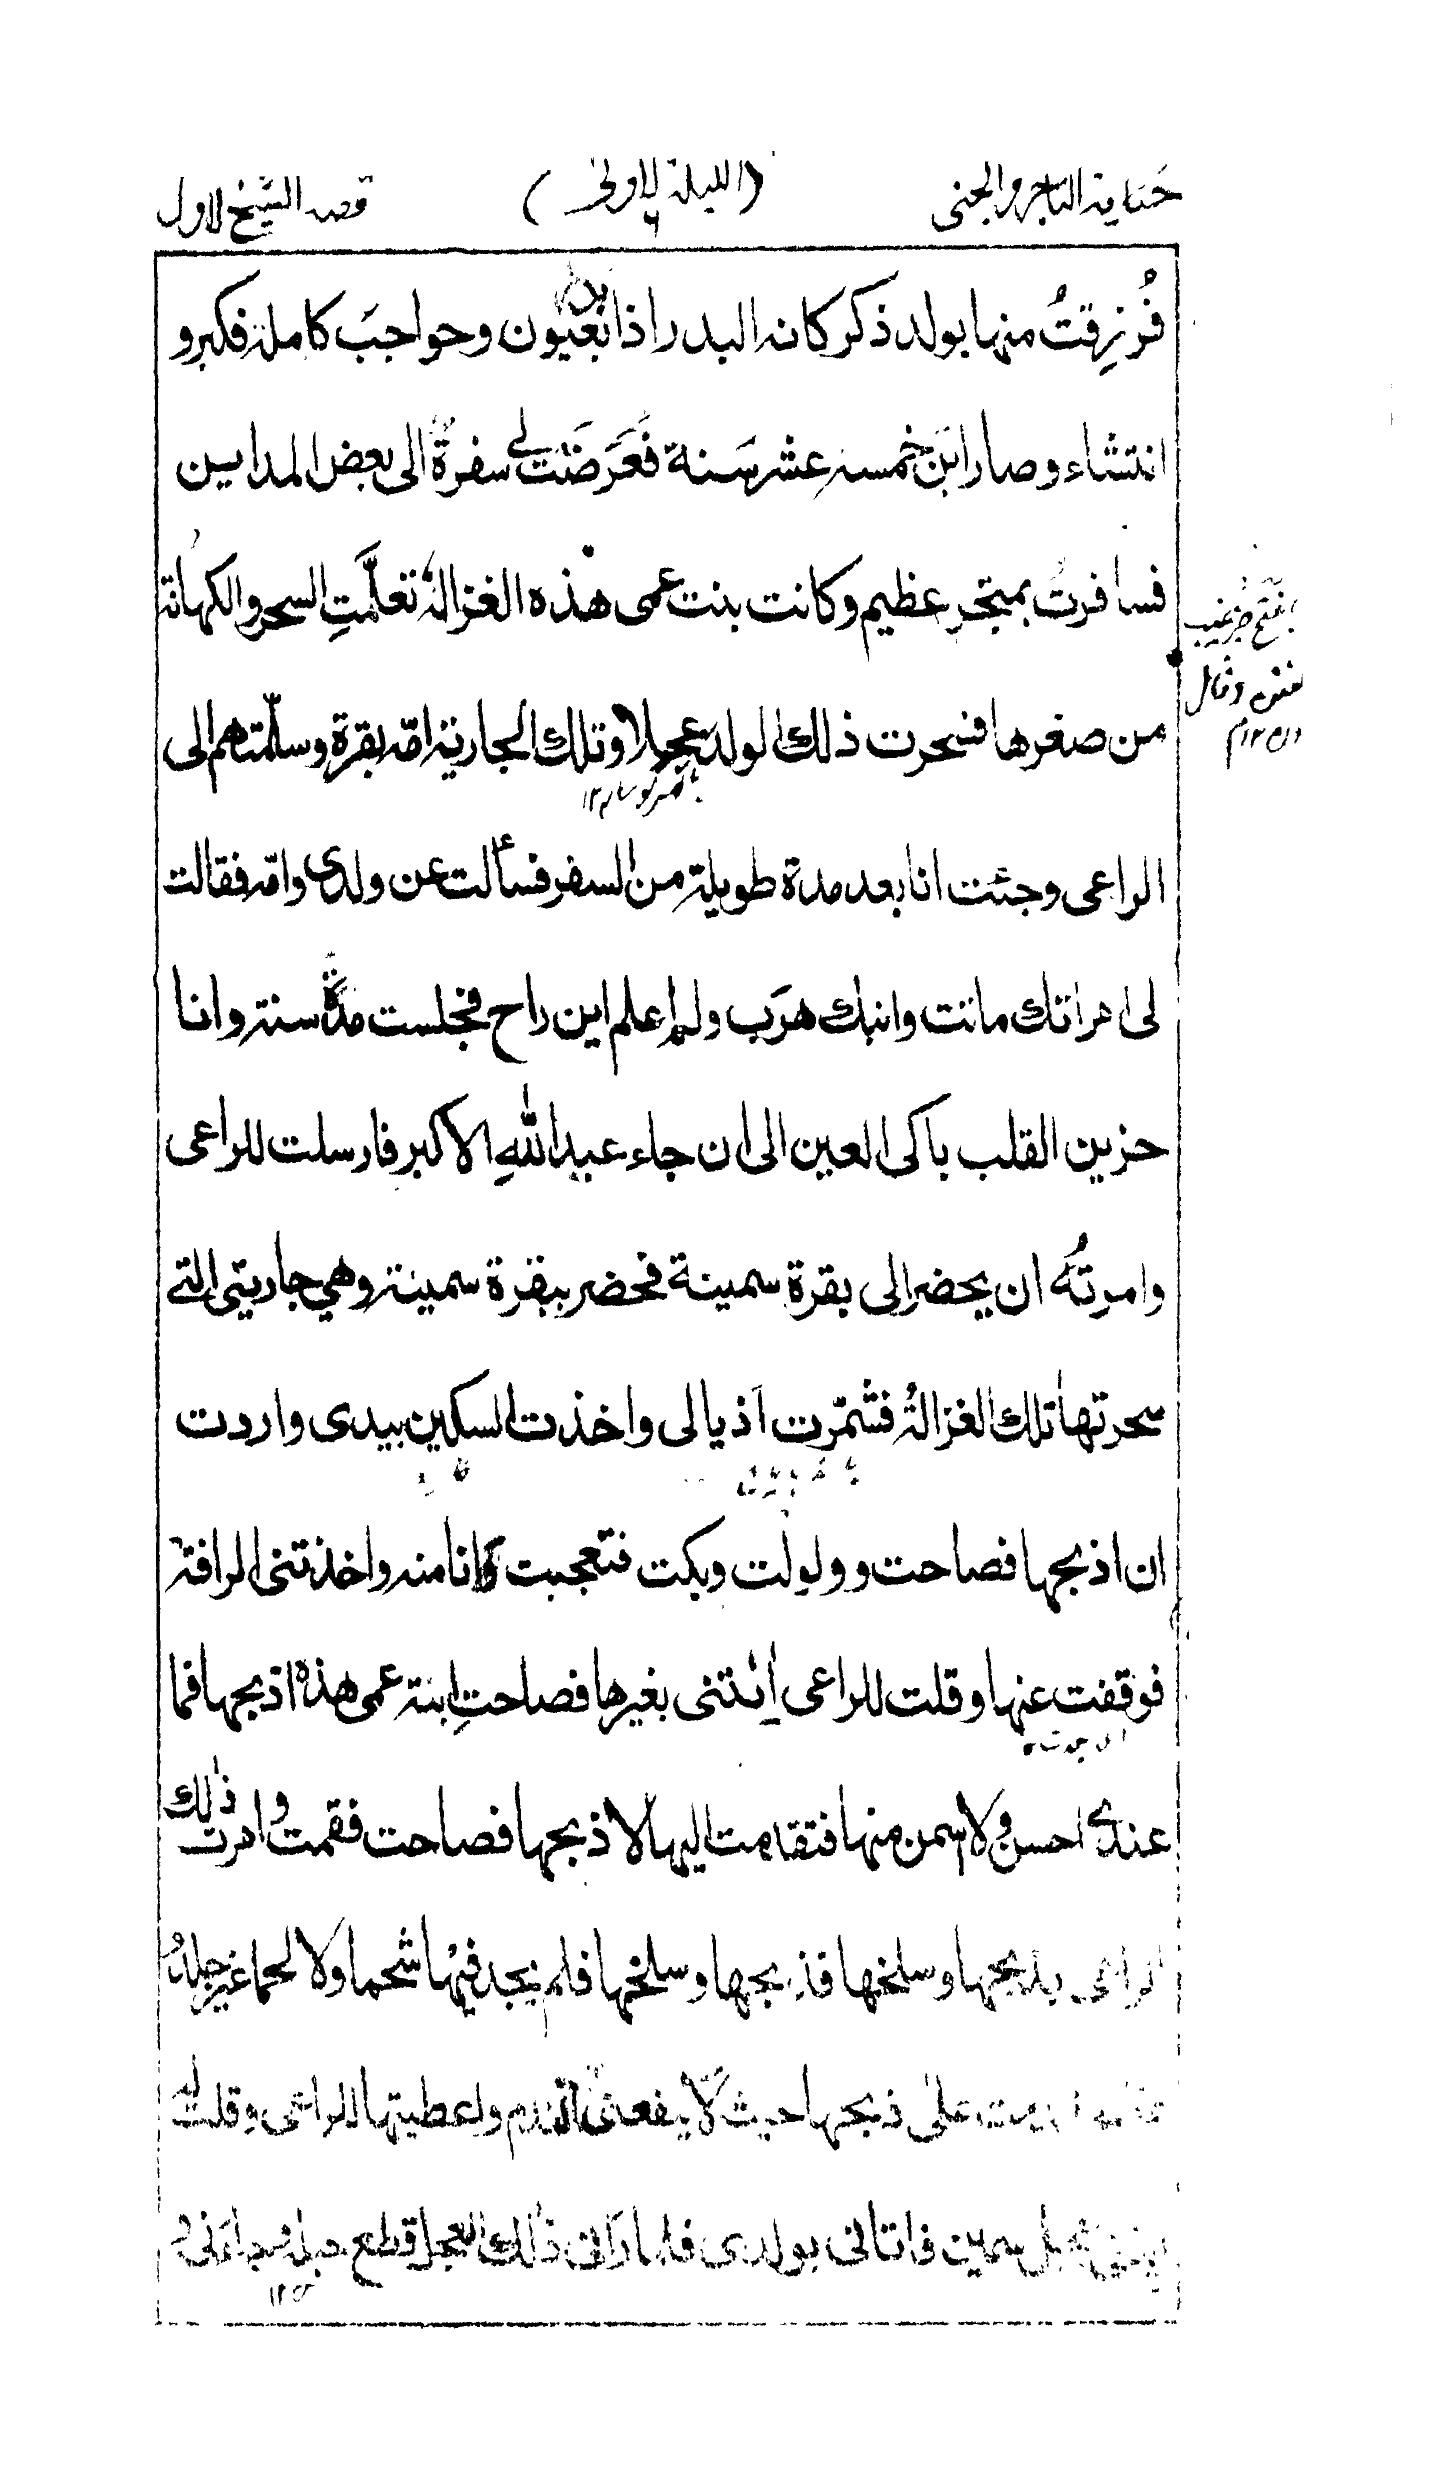 حكاية التاجر والجنى (الليلة الاولى) قصة الشيخ الاول
٦
فُرزِقتُ منها بولد ذكر كانه البدر اذا بعيون وحواجبَ كاملة فكبر و
انتشاء وصار ابنَ خمسة عشر سَنة فَعَرَضَتْ لي سفرةٌ الى بعض المداين
فسافرتُ بمتجرٍ عظيم وكانت بنت عمى هذه الغزالةُ تعلَّمتِ السحر والكهانة
من صغرها فسحرت ذلك الولدَ عجلا وتلك الجارية امّه بقرة وسلّمتاهم الى
الراعى وجئت انا بعد مدة طويلة من السفر فسألت عن ولدى وامّه فقالت
لى امراتك ماتت وابنك هرَب ولم اعلم اين راح فجلست مدّةَ سنة وانا
حزين القلب باكى العين الى ان جاء عيد اللهِ الاكبر فارسلت للراعى
وامرتُه ان يحضر الى بقرة سمينة فحضر ببقرة سمينة وهي جاريتى التے
سحرتها تلك الغزالةُ فشمّرت اَذيالى واخذت السكين بيدى واردت
ان اذبحها فصاحت وولولت وبكت فتعجبت وانا منه واخذتنى الرافة
فوقفت عنها وقلت للراعى اِئتنى بغيرها فصاحتِ ابنة عمى هذه اذبحها فما
عندى احسن ولا اسمن منها فتقدمت اليها لاذبحها فصاحت فقمت وامرت ذلك
الراعى بذبحها وسلخها فذبحها وسلخها فلم يجد فيها شحما ولا لحما غير جلدٍ
على ذبحها حيث لا ينفعنى الندم واعطيتها للراعى وقلت له
سمين فاتانى بولدى فلما رَانى ذلك العجل قطع حبله وجاءنى و